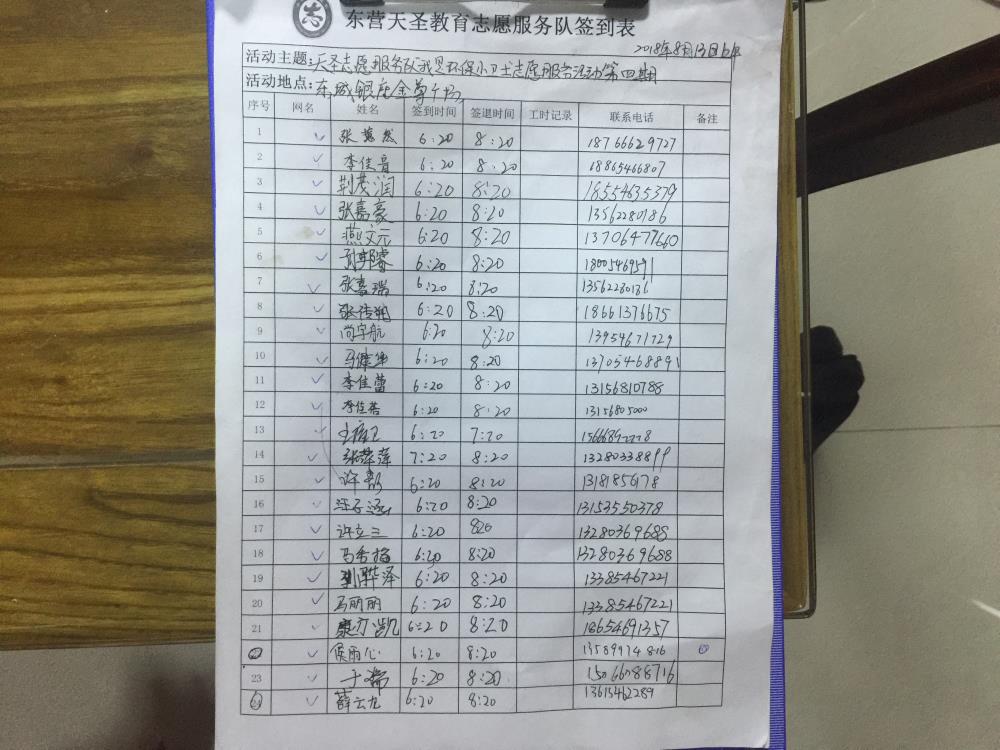 东营天圣教育志愿服务队签到表
2018年8月13日
活动主题:天圣志愿服务队我是环保小卫士志愿服务活动第四期
活动地点:东城银座金尊广场
序号 网名 姓名 签到时间 签退时间 工时记录 联系电话 备注
1 ✓ 张慧然 6:20 8:20 18766629727
2 ✓ 李佳音 6:20 8:20 18865466807
3 ✓ 荆茂润 6:20 8:20 18554635379
4 ✓ 张嘉豪 6:20 8:20 13562280186
5 ✓ 燕文元 6:20 8:20 13706477660
6 ✓ 6:20 8:20
7 ✓ 张嘉瑞 6:20 8:20 13562280186
8 ✓ 6:20 8:20 18661376675
9 ✓ 尚宇航 6:20 8:20 13954671729
10 ✓ 马健华 6:20 8:20 13705468891
11 ✓ 李佳蕾 6:20 8:20 13156810788
12 ✓ 李佳蓓 6:20 8:20 13156805000
13 ✓ 6:20 7:20
14 ✓ 张萍萍 7:20 8:20 13280338899
15 ✓ 6:20 8:20
16 ✓ 6:20 8:20 13153550378
17 ✓ 许立三 6:20 820 13280369688
18 ✓ 马秀梅 6:20 8:20 13280369688
19 ✓ 刘骅泽 6:20 8:20 13385467221
20 ✓ 马丽丽 6:20 8:20 13385467221
21 ✓ 康力凯 6:20 8:20 18654691357
22 ✓ 侯雨心 6:20 8:20 13589974816
23 ✓ 于瑞 6:20 8:20 15066088716
24 ✓ 薛云九 6:20 8:20 13615462289